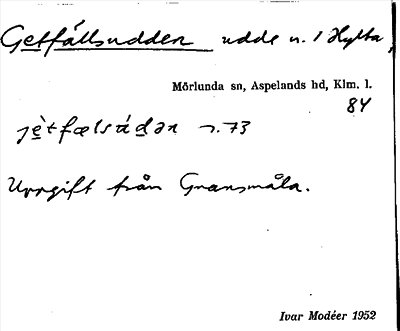 Getfällsudden udde n. i Hylta,
Mörlunda sn, Aspelands hd, Klm. l.
84
jètfælsúdən n. 73
Uppgift från Gransmåla.
Ivar Modéer 1952